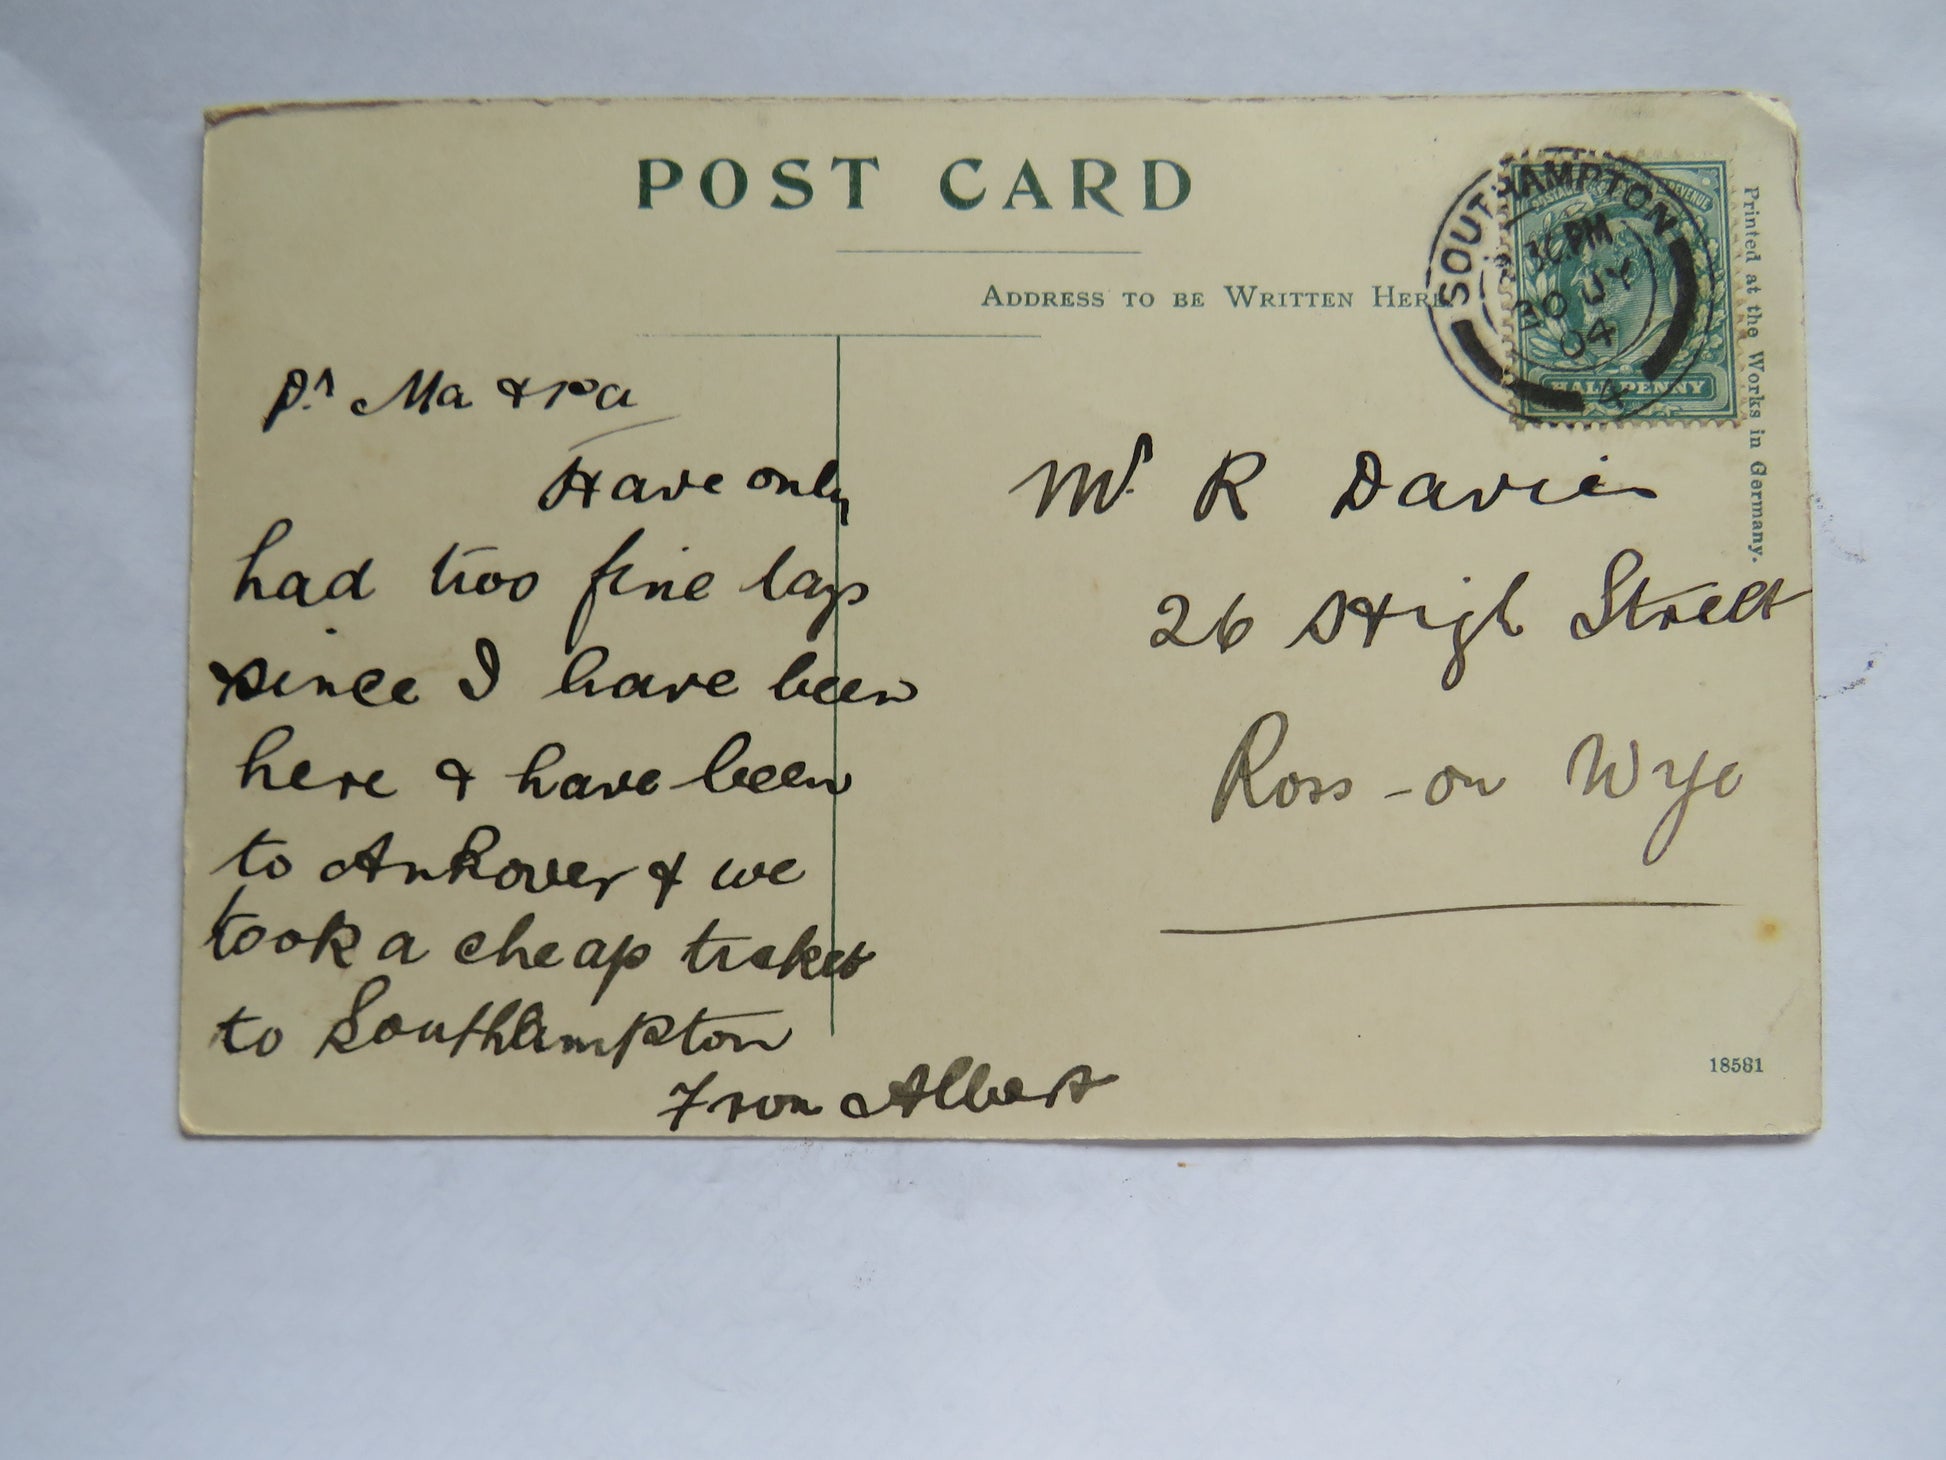 POST CARD
ADDRESS TO BE WRITTEN HERE
SOUTHAMPTON
30 PM
JY
04
4
POSTAGE REVENUE
HALF PENNY
Printed at the Works in Germany.
Dr Ma & Pa
Have only
had two fine days
since I have been
here & have been
to Andover & we
took a cheap ticket
to Southampton
From Albert
Mr R Davies
26 High Street
Ross-on Wye
18581